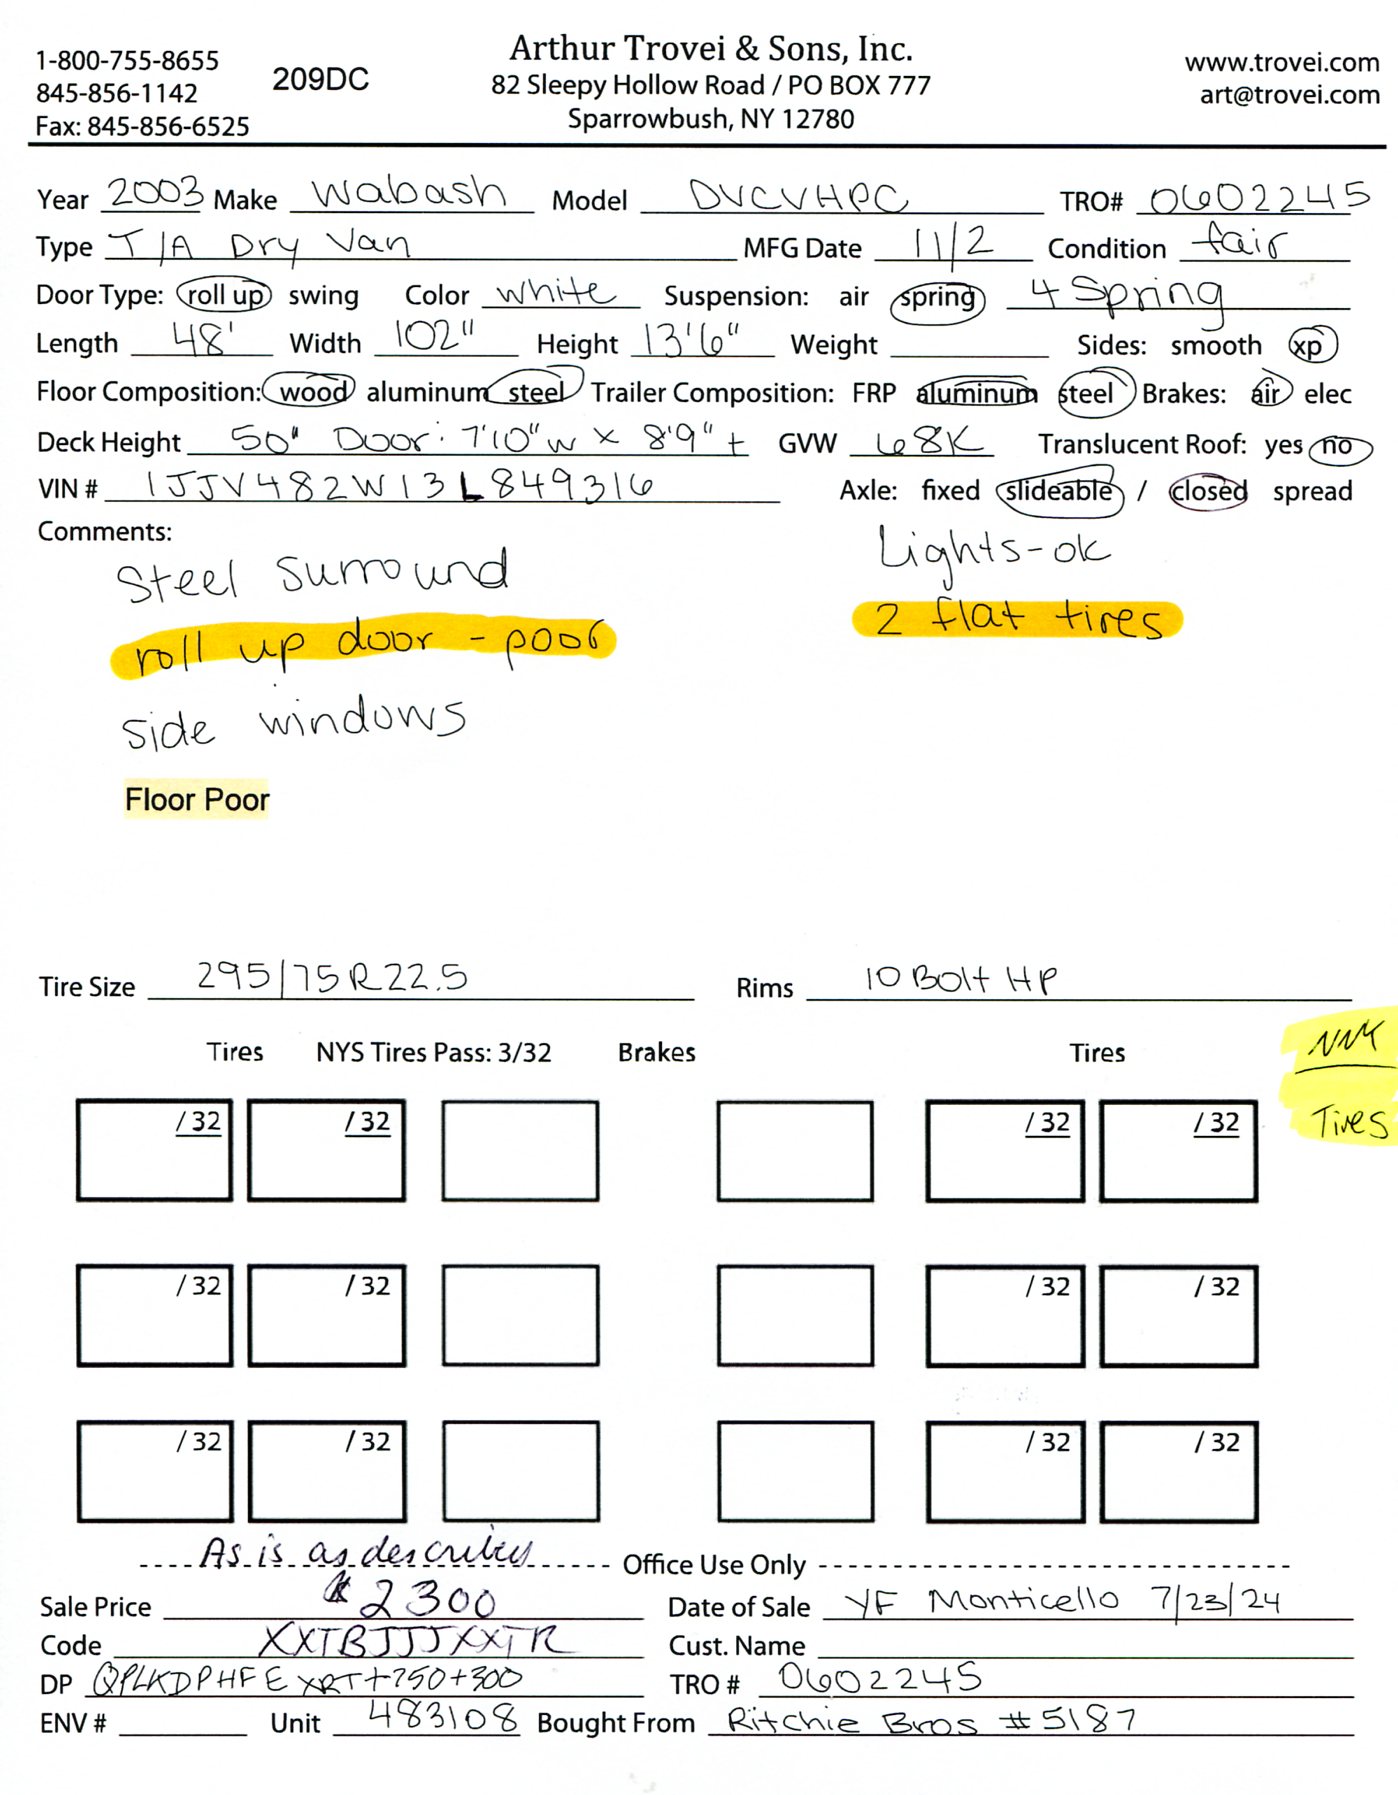 Arthur Trovei & Sons, Inc.
1-800-755-8655
209DC
82 Sleepy Hollow Road / PO BOX 777
www.trovei.com
845-856-1142
art@trovei.com
Fax: 845-856-6525
Sparrowbush, NY 12780
Year 2003 Make Wabash Model DVCVHPC TRO# 0602245
Type T/A Dry Van MFG Date 11/2 Condition fair
Door Type: roll up swing Color white Suspension: air spring 4 Spring
Length 48' Width 102" Height 13'6" Weight Sides: smooth xp
Floor Composition: wood aluminum steel Trailer Composition: FRP aluminum steel Brakes: air elec
Deck Height 50" Door: 7'10"w x 8'9"t GVW 68K Translucent Roof: yes no
VIN # 1JJV482W13L849316 Axle: fixed slideable / closed spread
Comments:
Steel surround
Lights-ok
roll up door - poor
2 flat tires
side windows
Floor Poor
Tire Size 295/75R22.5 Rims 10 Bolt HP
Tires NYS Tires Pass: 3/32 Brakes Tires
Tires
/32 /32 /32 /32
/32 /32 /32 /32
/32 /32 /32 /32
As is as describes Office Use Only
Sale Price $2300 Date of Sale YF Monticello 7/23/24
Code XXTBJJJXXTR Cust. Name
DP QPLKDPHFEXRT+750+300 TRO # 0602245
ENV # Unit 483108 Bought From Ritchie Bros #5187